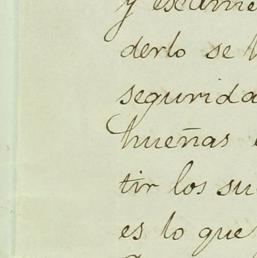 y escarme
derlo se
segurida
hueñas
tir los su
es lo que